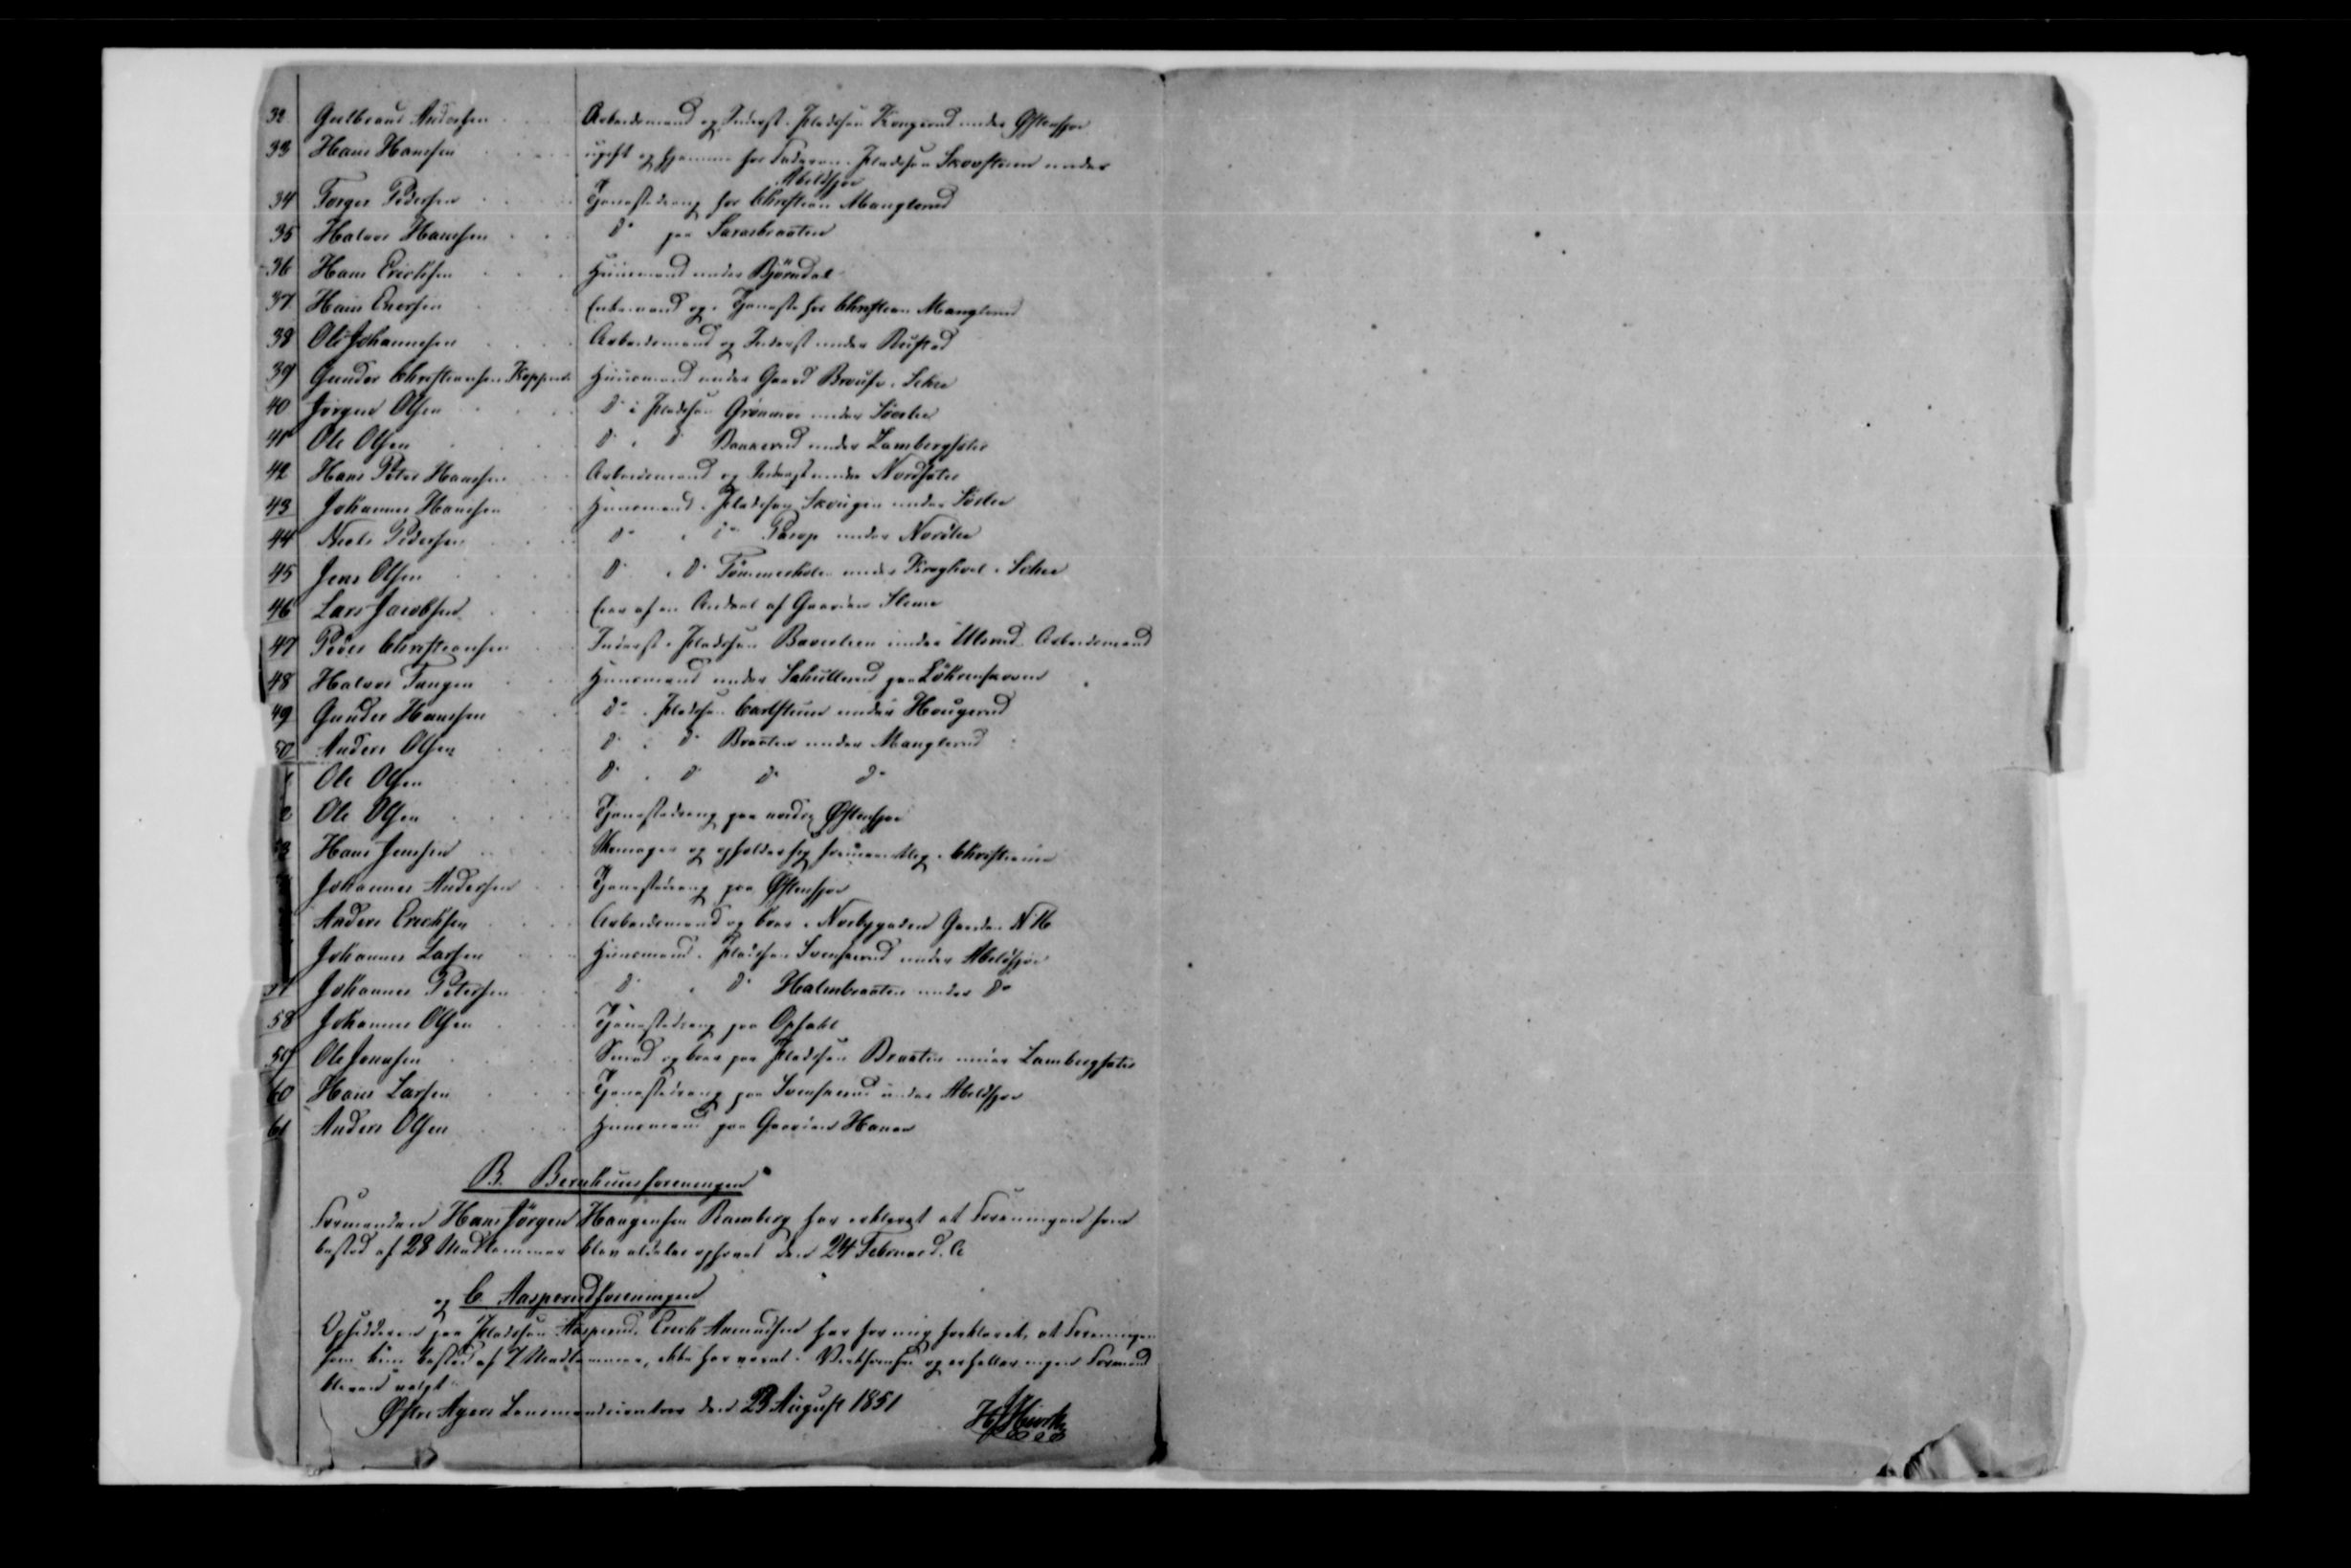 32 Gulbrand Andersen Arbeidsmand og Inderst i Pladsen Kongerud under Østensjøe
33 Hans Hansen ugift og hjemme hos Faderen i Pladsen Skovstuen under
Abeldsjøe
34 Torger Pedersen Tjenestedreng hos Christian Manglerud
35 Halvor Hansen do paa Sarasbraaten
36 Hans Erichsen Huusmand under Bjørndal
37 Hans Eversen Enkemand og i Tjeneste hos Christian Manglerud
38 Ole Johannesen Arbeidsmand og Inderst under Rustad
39 Gunder Christiansen Huusmand under Gaard Brouse i Schee
40 Jørgen Olsen do i Pladsen Grønmoe under Søerlie
41 Ole Olsen do i do Baaserud under Lambergseter
42 Hans Peter Hansen Arbeidsmand og Inderst under Nordseter
43 Johannes Hansen Huusmand i Pladsen Skougen under Sørlie
44 Niels Pedersen do i do under Nordlie
45 Jens Olsen do i do Tømmerholen under Kraghvel i Schee
46 Lars Jacobsen Eier af en Andeel af Gaarden
47 Peder Christiansen Inderst i Pladsen Baverlien under Ulsrud Arbeidsmand
48 Halvor Tangen Huusmand under Schullerud paa Løkkenhaven
49 Gunder Hansen do i Pladsen Carlstuen under Hougerud
50 Anders Olsen do i do Braaten under Manglerud
Ole Olsen do i do do do
2 Ole Olsen Tjenestedreng paa nordre Østensjøe
53 Hans Jensen Skomager og opholder sig i Christiania
Johannes Andersen Tjenestedreng paa Østensjøe
Anders Erichsen Arbeidsmand og boer i Norbygaden Gaarden N 16
Johannes Larsen Huusmand i Pladsen Svenserud under Abeldsjøe
57 Johannes Petersen do i do Halmbraaten under do
58 Johannes Olsen Tjenestedreng paa Opsahl
59 Ole Jensen Smed og boer paa Pladsen Braaten under Lambergseter
60 Hans Larsen Tjenestedreng paa Svenserud under Abeldsjøe
61 Anders Olsen Huusmand paa Gaarden
B. Foreningen
Formanden Hans Jørgen Haagensen Ramberg har erklæret at Foreningen som
bestod af 28 Medlemmer blev aldeles ophævet den 24 Februar d. A
og C. Aasperudforeningen
Opsidderen paa Pladsen Aasperud, Erich Amundsen har for mig forklaret, at Foreningen
som kun bestod af 7 Medlemmer, ikke har været i Virksomhed og er heller ingen Formand
bleven valgt
Østre Agers Lensmandscontoir den 23 August 1851